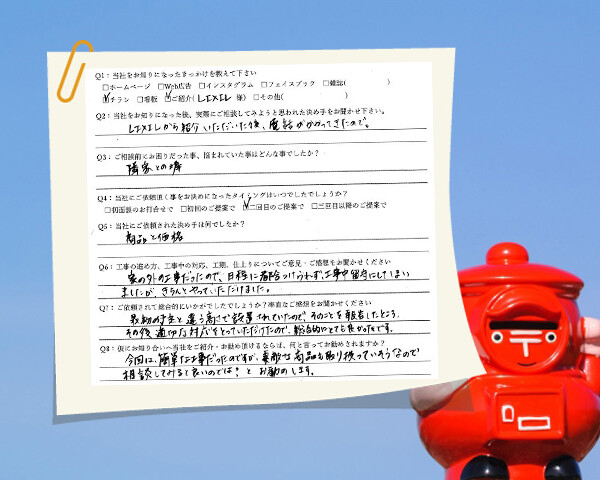 Q1：当社をお知りになったきっかけを教えて下さい
□ホームページ □Web広告 □インスタグラム □フェイスブック □雑誌( )
☑チラシ □看板 ☑ご紹介(LIXIL 様) □その他( )
Q2：当社をお知りになった後、実際にご相談してみようと思われた決め手をお聞かせ下さい。
LIXILから紹介いただいた後、電話がかかってきたので。
Q3：ご相談前にお困りだった事、悩まれていた事はどんな事でしたか？
隣家との塀
Q4：当社にご依頼頂く事をお決めになったタイミングはいつでしたでしょうか？
□初面談のお打合せで □初回のご提案で ☑二回目のご提案で □三回目以降のご提案で
Q5：当社にご依頼された決め手は何でしたか？
商品と価格
Q6：工事の進め方、工事中の対応、工期、仕上りについてご意見・ご感想をお聞かせください
家の外の工事だったので、日程に都合つけられず、工事中留守にしてしまい
ましたが、きちんとやっていただけました。
Q7：ご依頼されて総合的にいかがでしたでしょうか？率直なご感想をお聞かせください
最初の予定と違う高さで設置されていたので、そのことを報告したところ、
その後適切な対応をとっていただけたので、総合的にとても良かったです。
Q8：仮にお知り合いへ当社をご紹介・お勧め頂けるならば、何と言ってお勧めされますか？
今回は、簡単な工事だったのですが、素敵な商品も取り扱っていそうなので
相談してみると良いのでは？と お勧めします。